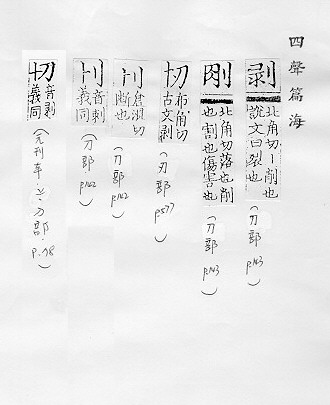 四聲篇海
剥
北角切丨削也
說文曰裂也
(刀部 p.143)
北角切落也削
也割也傷害也
(刀部 p.143)
布角切
古文剥
(刃部 p.577)
切
断也
(刀部 p.142)
音剥
義同
(刀部 p.142)
音剥
義同
刀部 p.78)